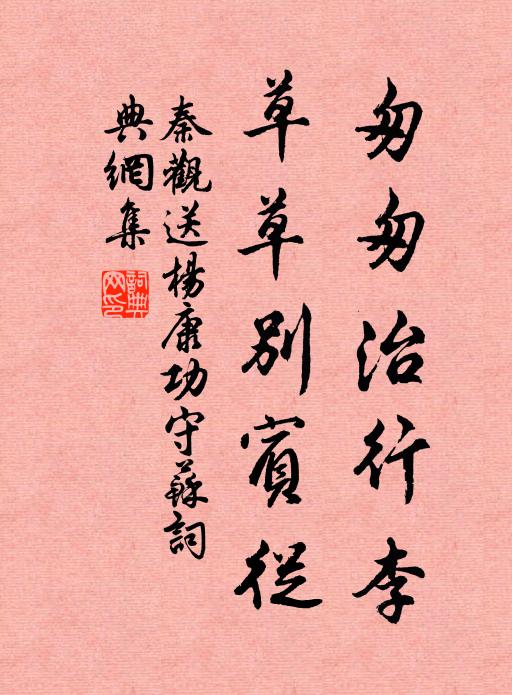 匆匆治行李
草草別賓從
秦觀送楊康功守蘇詞
典網集
詞典網印